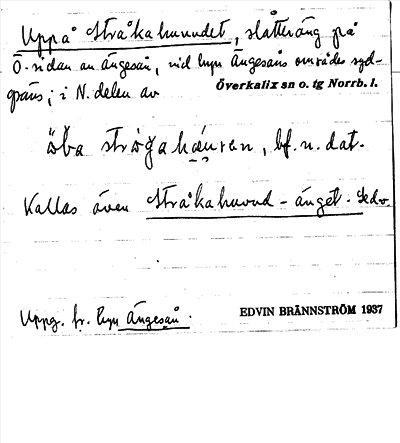 Uppå Stråkahuvudet, slåtteräng på
Ö-sidan av Ängesån, vid byn Ängesåns områdes syd-
gräns; i N. delen av Överkalix sn o. tg Norrb. l.
bf. n. dat.
Kallas även Stråkahuvud-änget. Se d.o.
Uppg. fr. byn Ängesån.
EDVIN BRÄNNSTRÖM 1937